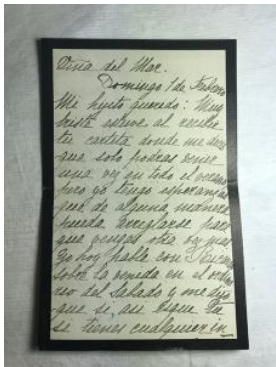 Viña del Mar.
Domingo 1 de Febrero
Mi hijito querido: Muy
triste estuve al recibir
tu cartita donde me dices
que solo podras venir
una vez en todo el verano
pero yo tengo esperanzas
que de alguna manera
pueda arreglarse para
que vengas otra vez mas
Yo hoy hablé con
sobre la venida en el
del Sabado y me dijo
que si, asi es que
si tienes cualquier in